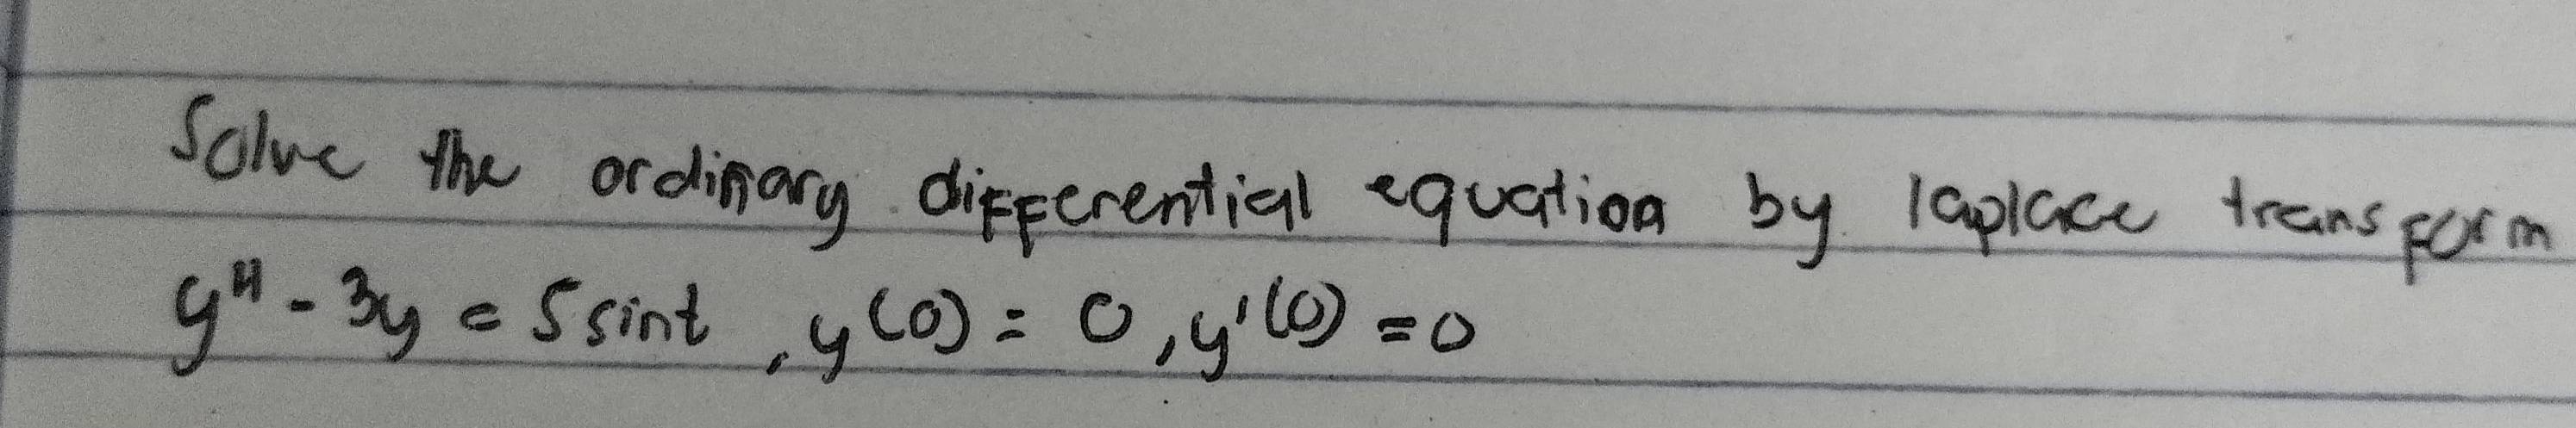 Solve the ordinary differential equation by laplace transform
y" - 3y = 5 sint , y(0) = 0 , y'(0) = 0